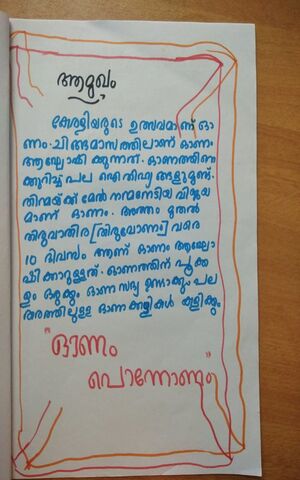 ആമുഖം
കേരളിയരുടെ ഉത്സവമാണ് ഓ
ണം. ചിങ്ങമാസത്തിലാണ് ഓണം
ആഘോഷി ക്കുന്നത്. ഓണത്തിനെ
ക്കുറിച്ച് പല ഐതിഹ്യ ങ്ങളുമുണ്ട്.
തിന്മയ്ക്ക് മേൽ നന്മനേടിയ വിജയ
മാണ് ഓണം. അത്തം മുതൽ
തിരുവാതിര [തിരുവോണം] വരെ
10 ദിവസം ആണ് ഓണം ആഘോ
ഷിക്കാറുള്ളത്. ഓണത്തിന് പൂക്ക
ളം ഒരുക്കും ഓണ സദ്യ ഉണ്ടാക്കും പല
തരത്തിലുളള ഓണ കളികൾ കളിക്കും
"ഓണം
പൊന്നോണം"